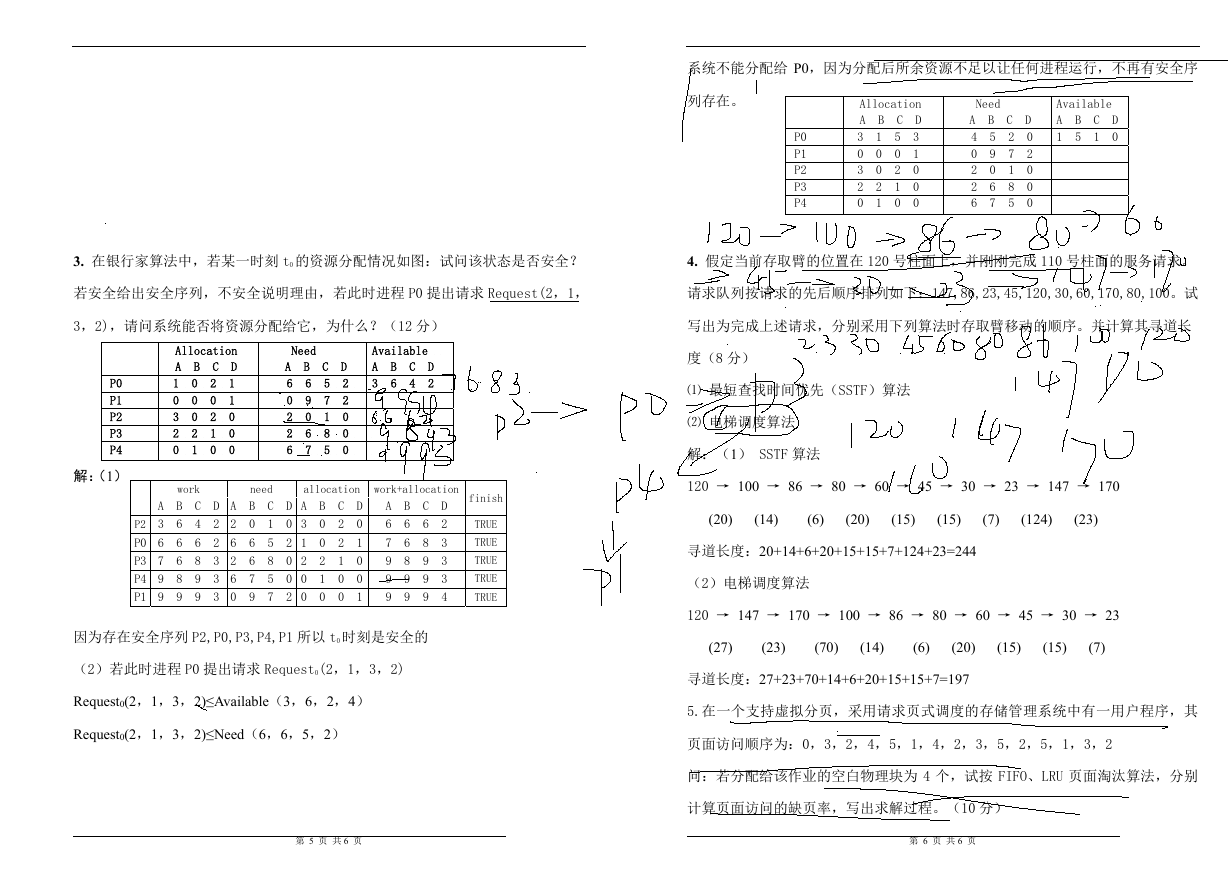 3. 在银行家算法中，若某一时刻 t₀的资源分配情况如图：试问该状态是否安全？
若安全给出安全序列，不安全说明理由，若此时进程 P0 提出请求 Request(2，1，
3，2)，请问系统能否将资源分配给它，为什么？（12 分）
Allocation Need Available
A B C D A B C D A B C D
P0 1 0 2 1 6 6 5 2 3 6 4 2
P1 0 0 0 1 0 9 7 2
P2 3 0 2 0 2 0 1 0
P3 2 2 1 0 2 6 8 0
P4 0 1 0 0 6 7 5 0
7 6 8 3
P2 → P0
P4
P1
解：（1）
work need allocation work+allocation finish
A B C D A B C D A B C D A B C D
P2 3 6 4 2 2 0 1 0 3 0 2 0 6 6 6 2 TRUE
P0 6 6 6 2 6 6 5 2 1 0 2 1 7 6 8 3 TRUE
P3 7 6 8 3 2 6 8 0 2 2 1 0 9 8 9 3 TRUE
P4 9 8 9 3 6 7 5 0 0 1 0 0 9 9 9 3 TRUE
P1 9 9 9 3 0 9 7 2 0 0 0 1 9 9 9 4 TRUE
因为存在安全序列 P2,P0,P3,P4,P1 所以 t₀时刻是安全的
（2）若此时进程 P0 提出请求 Request₀(2，1，3，2)
Request₀(2，1，3，2)≤Available（3，6，2，4）
Request₀(2，1，3，2)≤Need（6，6，5，2）
第 5 页 共 6 页
系统不能分配给 P0，因为分配后所余资源不足以让任何进程运行，不再有安全序
列存在。
Allocation Need Available
A B C D A B C D A B C D
P0 3 1 5 3 4 5 2 0 1 5 1 0
P1 0 0 0 1 0 9 7 2
P2 3 0 2 0 2 0 1 0
P3 2 2 1 0 2 6 8 0
P4 0 1 0 0 6 7 5 0
120 → 100 → 86 → 80 → 60
4. 假定当前存取臂的位置在 120 号柱面上，并刚刚完成 110 号柱面的服务请求，
→ 45 → 30 → 23 → 147 → 170
请求队列按请求的先后顺序排列如下：147,86,23,45,120,30,60,170,80,100。试
写出为完成上述请求，分别采用下列算法时存取臂移动的顺序。并计算其寻道长
23 30 45 60 80 86 100 120
度（8 分）
147 170
⑴ 最短查找时间优先（SSTF）算法
⑵ 电梯调度算法
120 147 170
解：（1） SSTF 算法
160
120 → 100 → 86 → 80 → 60 → 45 → 30 → 23 → 147 → 170
(20) (14) (6) (20) (15) (15) (7) (124) (23)
寻道长度：20+14+6+20+15+15+7+124+23=244
（2）电梯调度算法
120 → 147 → 170 → 100 → 86 → 80 → 60 → 45 → 30 → 23
(27) (23) (70) (14) (6) (20) (15) (15) (7)
寻道长度：27+23+70+14+6+20+15+15+7=197
5.在一个支持虚拟分页，采用请求页式调度的存储管理系统中有一用户程序，其
页面访问顺序为：0，3，2，4，5，1，4，2，3，5，2，5，1，3，2
问：若分配给该作业的空白物理块为 4 个，试按 FIFO、LRU 页面淘汰算法，分别
计算页面访问的缺页率，写出求解过程。（10 分）
第 6 页 共 6 页